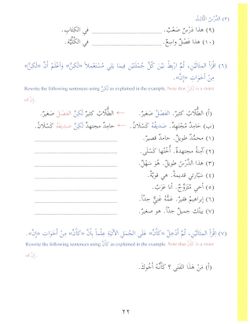 (٣) الدَّرْسُ الثَّالِثُ
(٩) هذا دَرْسٌ صَعْبٌ. ______ في الكِتابِ.
(١٠) هذا فَصْلٌ واسِعٌ. ______ في الكُلِّيَّةِ.
(٦) اقْرَأِ المِثالَيْنِ، ثُمَّ ارْبِطْ بَيْنَ كُلِّ جُمْلَتَيْنِ فِيما يَلي مُسْتَعْمِلاً «لكِنَّ» واعْلَمْ أنَّ «لكِنَّ»
مِنْ أخَواتِ «إنَّ».
Rewrite the following sentences using لكِنَّ as explained in the example. Note that لكِنَّ is a sister
إنَّ.
(أ) الطُّلّابُ كَثيرٌ. الفَصْلُ صَغيرٌ. ← الطُّلّابُ كَثيرٌ لكِنَّ الفَصْلَ صَغيرٌ.
(ب) حامِدٌ مُجْتَهِدٌ. صَديقُهُ كَسْلانُ. ← حامِدٌ مُجْتَهِدٌ لكِنَّ صَديقَهُ كَسْلانُ.
(١) مُحَمَّدٌ طَويلٌ. حامِدٌ قَصيرٌ.
(٢) آمِنَةُ مُجْتَهِدَةٌ. أُخْتُها كَسْلى.
(٣) هذا الدَّرْسُ طَويلٌ. هُوَ سَهْلٌ.
(٤) سَيّارَتي قَديمَةٌ. هِيَ قَوِيَّةٌ.
(٥) أخي مُتَزَوِّجٌ. أنا عَزَبٌ.
(٦) إبْراهيمُ فَقيرٌ. عَمُّهُ غَنِيٌّ جِدّاً.
(٧) بَيْتُكَ جَميلٌ جِدّاً. هو صَغيرٌ.
(٧) اقْرَأِ المِثالَيْنِ، ثُمَّ أدْخِلْ «كَأنَّ» عَلى الجُمَلِ الآتِيَةِ عِلْماً بِأنَّ «كَأنَّ» مِنْ أخَواتِ «إنَّ».
Rewrite the following sentences using كَأنَّ as explained in the example. Note that كَأنَّ is a sister
إنَّ.
(أ) مَنْ هذا الفَتى ؟ كَأنَّهُ أخوكَ.
٢٢